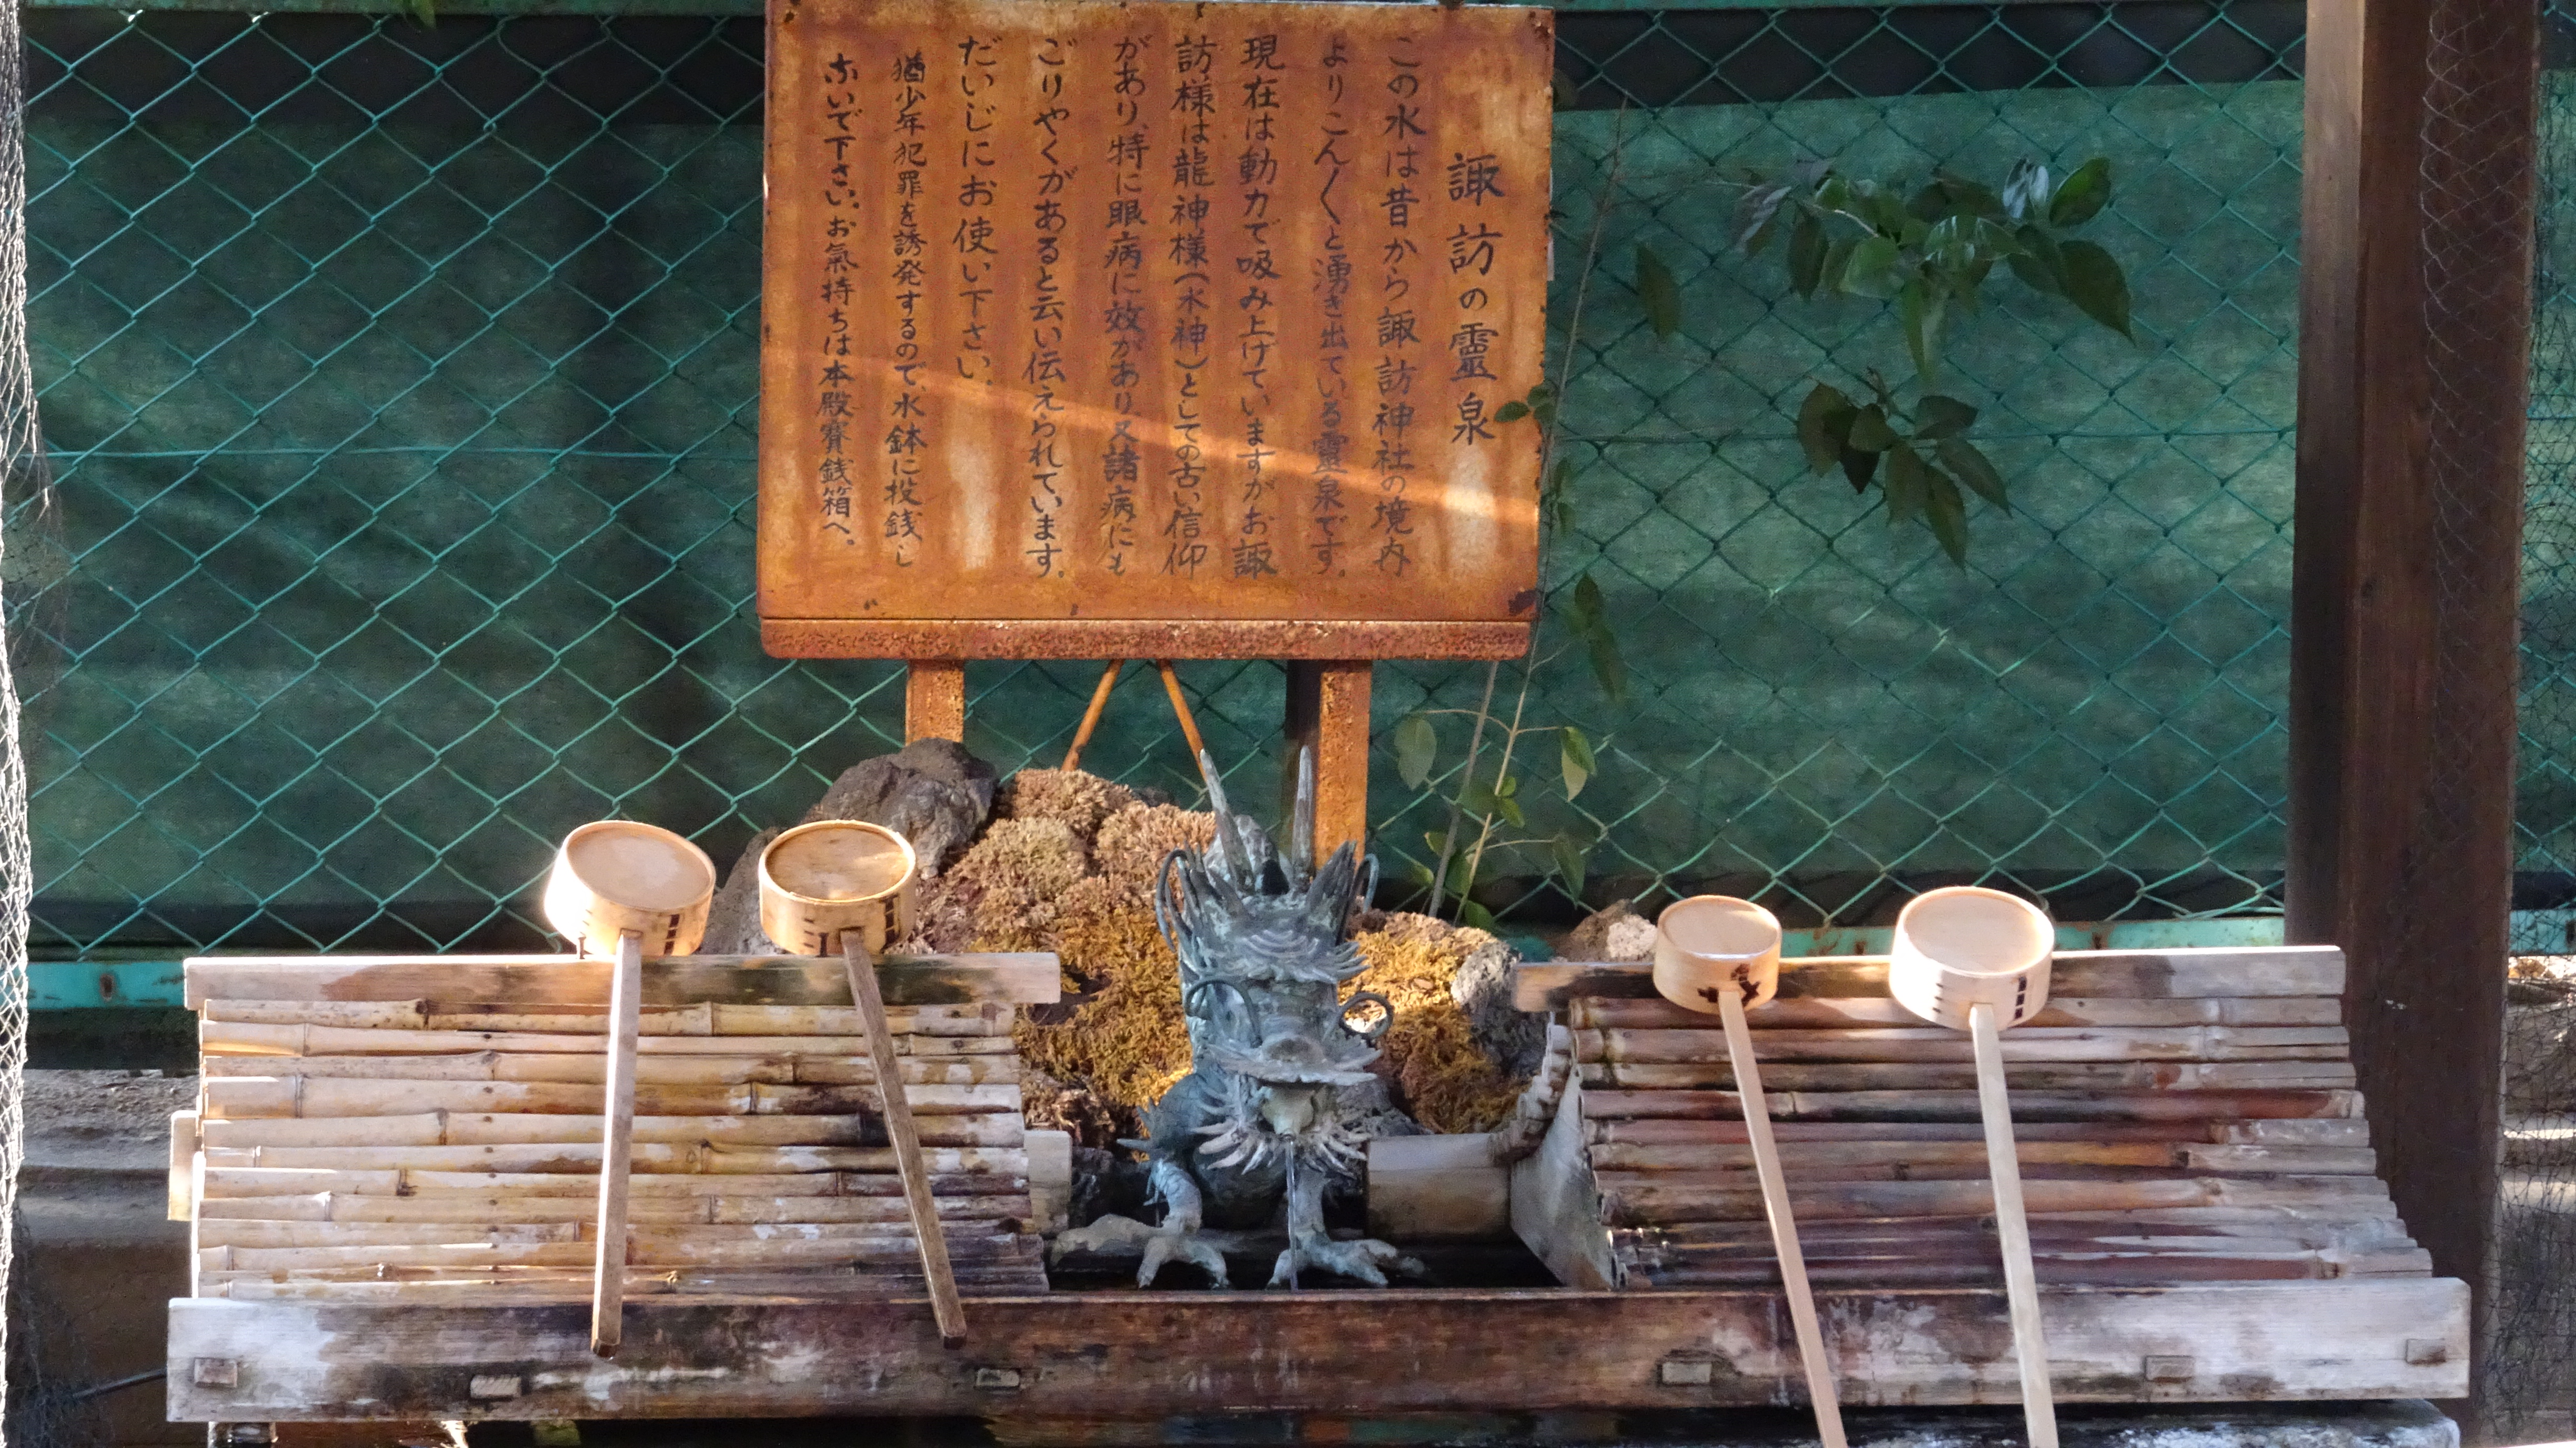 諏訪の霊泉
この水は昔から諏訪神社の境内
よりこん〱と湧き出ている霊泉です。
現在は動力で吸み上げていますがお諏
訪様は龍神様(水神)としての古い信仰
があり、特に眼病に効があり又諸病にも
ごりやくがあると云い伝えられています。
だいじにお使い下さい。
猶少年犯罪を誘発するので、水鉢に投銭し
ないで下さい。お氣持ちは本殿賽銭箱へ。